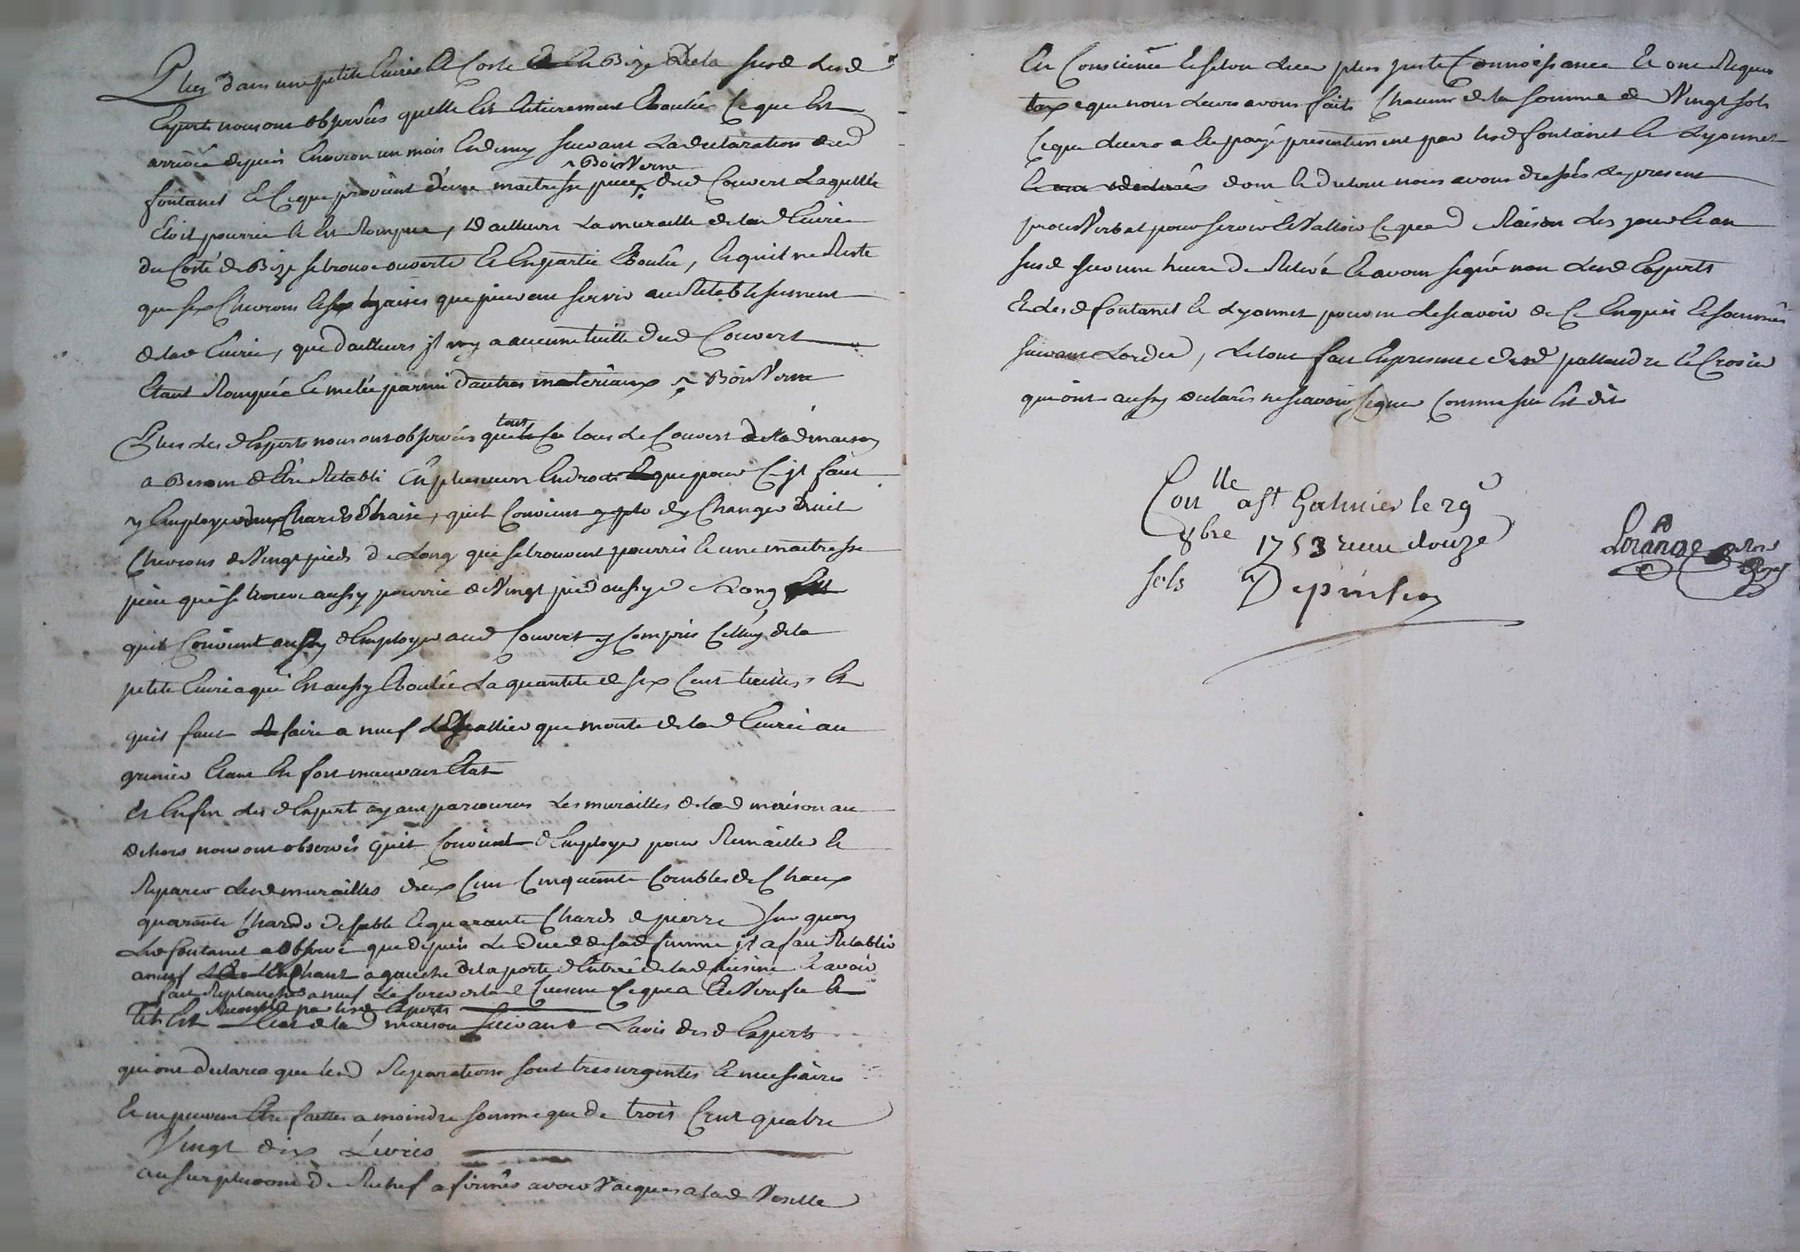 Plus dans une petite Ecurie A Coste de Bize De la susd lesd
Experts nous ont observés quelle Est Entierement Eboulée Ce que Est
arrivée depuis Environ un mois Endemy suivant La declaration dud
~ Bois Verne
fontanet Et Ce que provient d'une maitresse piece dud Couvert Laquelle
Etoit pourrie Et Est Rompue, D'ailleurs La muraille de lad Ecurie
du Costé de Bize se trouve ouverte Et En partie Eboulée, Et quil ne Reste
que six Chevrons Et six que peuvent servir au Retablissement
de lad Ecurie, que d'ailleurs jl ny a aucune tuille dud Couvert
Etant Rompuée Et melée parmi d'autres materiaux ~ Bois Verne
Plus les d Experts nous ont observés que tout le Couvert de lad maison
a Besoin d Etre Retabli En plusieurs Endroits que pour Ce jl faut
y Employer deux Chards , quil Convient dy Changer huit
Chevrons de Vingt pieds de Long qui se trouvent pourris Et une maitresse
piece que se trouve aussy pourrie de Vingt pieds aussy de Long
quil Convient aussy d Employer aud Couvert y Compris Celluy de la
petite Ecurie qui Est aussy Eboulée La quantité de six Cent tuilles, Et
quil faut Refaire a neuf L'Eschallier que monte de lad Ecurie au
grenier Etant En fort mauvais Etat
Et Enfin les d Experts ayant parcourus Les murailles de lad maison au
dehors nous ont observés quil Convient d Employer pour Remailler Et
Reparer lesd murailles deux Cent Cinquante Combles de Chaux
quarante Chards de sable Et quarante Chards de pierre sur quoy
Led fontanet a Observé que depuis Le Deced de sad femme jl a fait Retablir
a neuf a gauche de la porte d'Entrée de lad Cuisine Et avoir
fait Replancher a neuf Le de lad Cuisine Ce que a Eté Verifié Et
Reconnu par lesd Experts
Tel Est L'Etat de lad maison Suivant L'avis desd Experts
qui ont declarés que lesd Reparations sont tres urgentes Et necessaires
Et ne peuvent Etre faittes a moindre somme que de trois Cent quatre
Vingt dix Livres
au surplus ont De Rechef afirmés avoir Vacqués a lad Visitte
En Conscience Et selon Leur plus juste Connoissance Et ont Requis
taxe que nous Leurs avons faite Chacun de la somme de Vingt sols
Ce que Leurs a Eté payé presentement par lesd fontanet Et Lyonnet
dont Et du tout nous avons dressés Le present
procès Verbal pour servir Et Valloir Ce que d Raison Les jour Et an
susd sur une heure de Relevé Et avons signé non Lesd Experts
Et lesd fontanet Et Lyonnet pour ne Le scavoir de Ce Enquis Et sommés
suivant L'ordce, Le tout fait En presence desd pallandre Et Crosier
qui ont aussy declarés ne scavoir signer Comme sus Est dit
Conlle a St Galmier le 29
8bre 1753 receu douze
sols Depinhac
Lorange